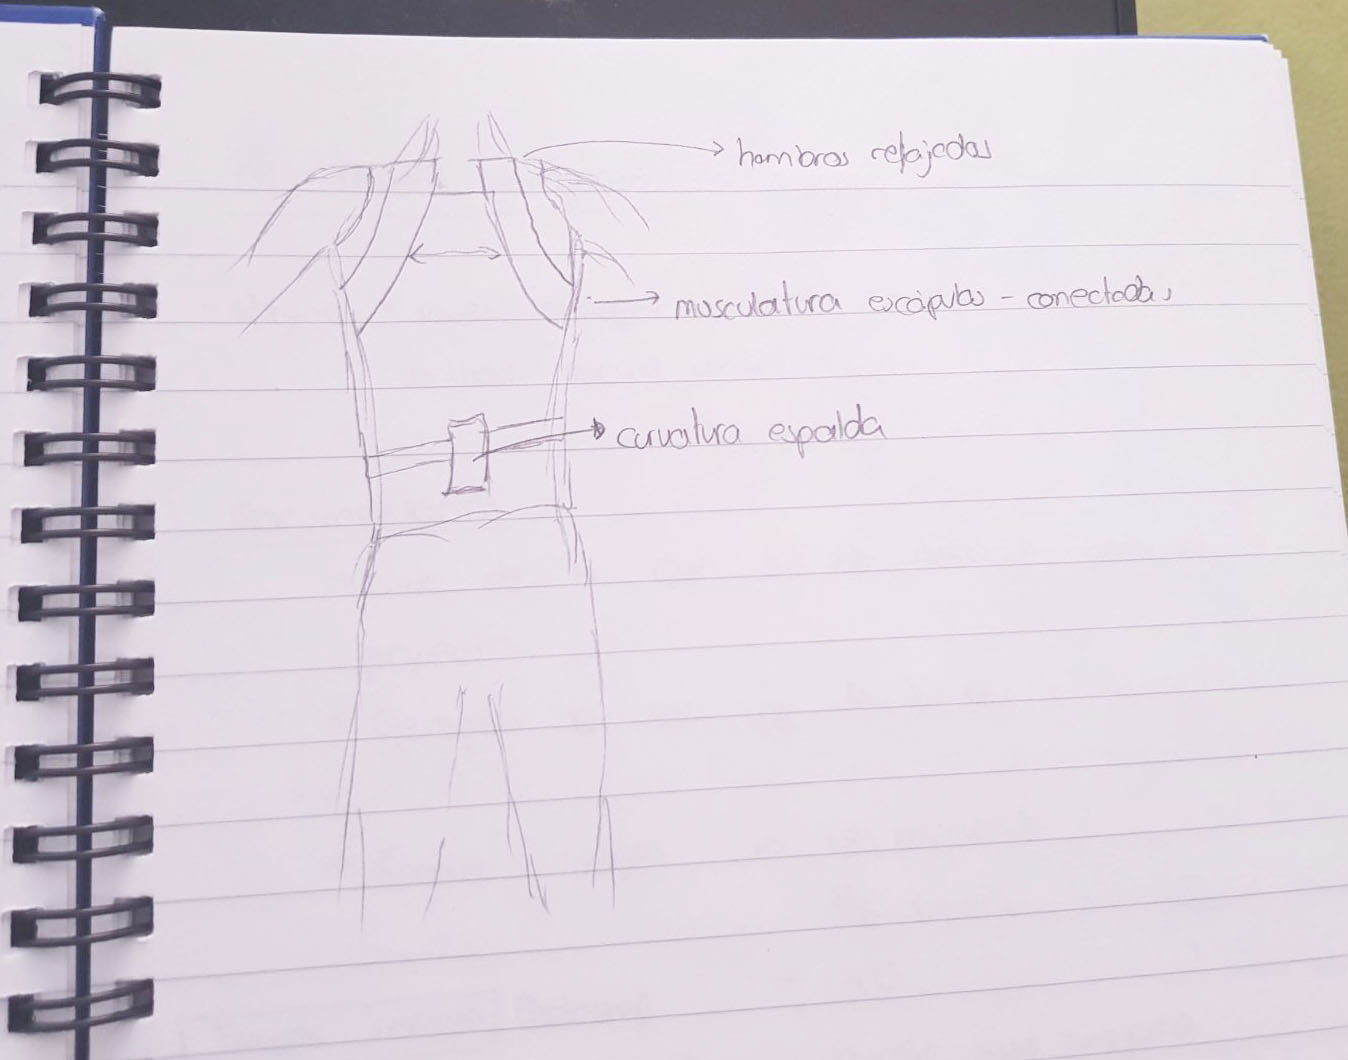 hombros relajados
musculatura escápulas - conectadas
curvatura espalda